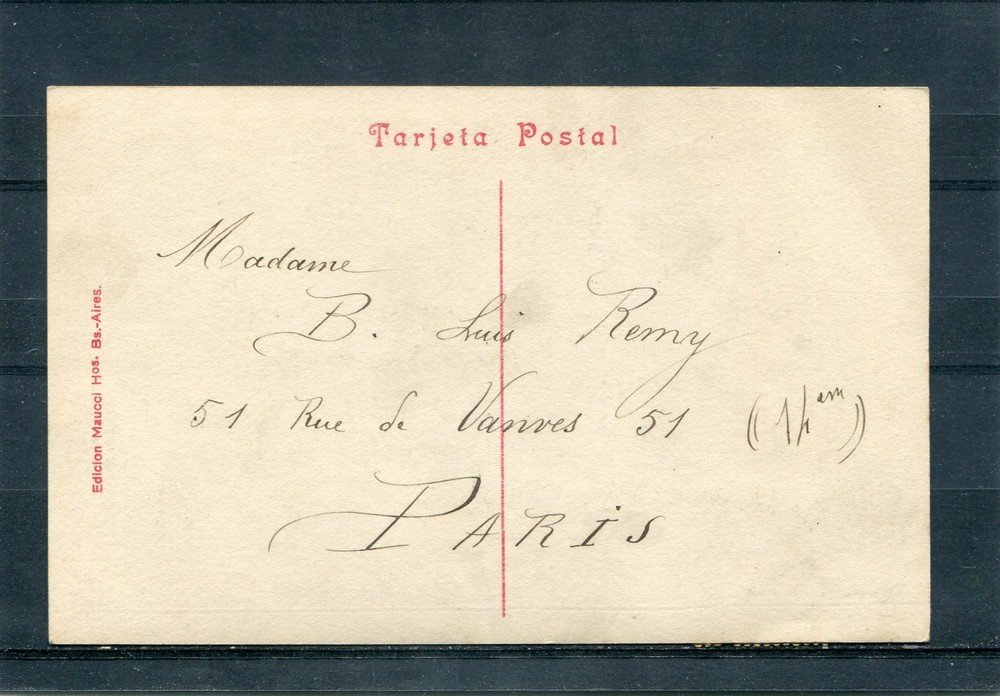 Tarjeta Postal
Madame
B. Luis Remy
51 Rue de Vanves 51 (14em)
PARIS
Edicion Maucci Hos. Bs.-Aires.